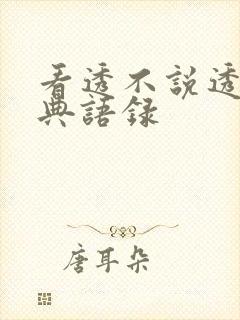 看透不説透
典語録
唐耳朵